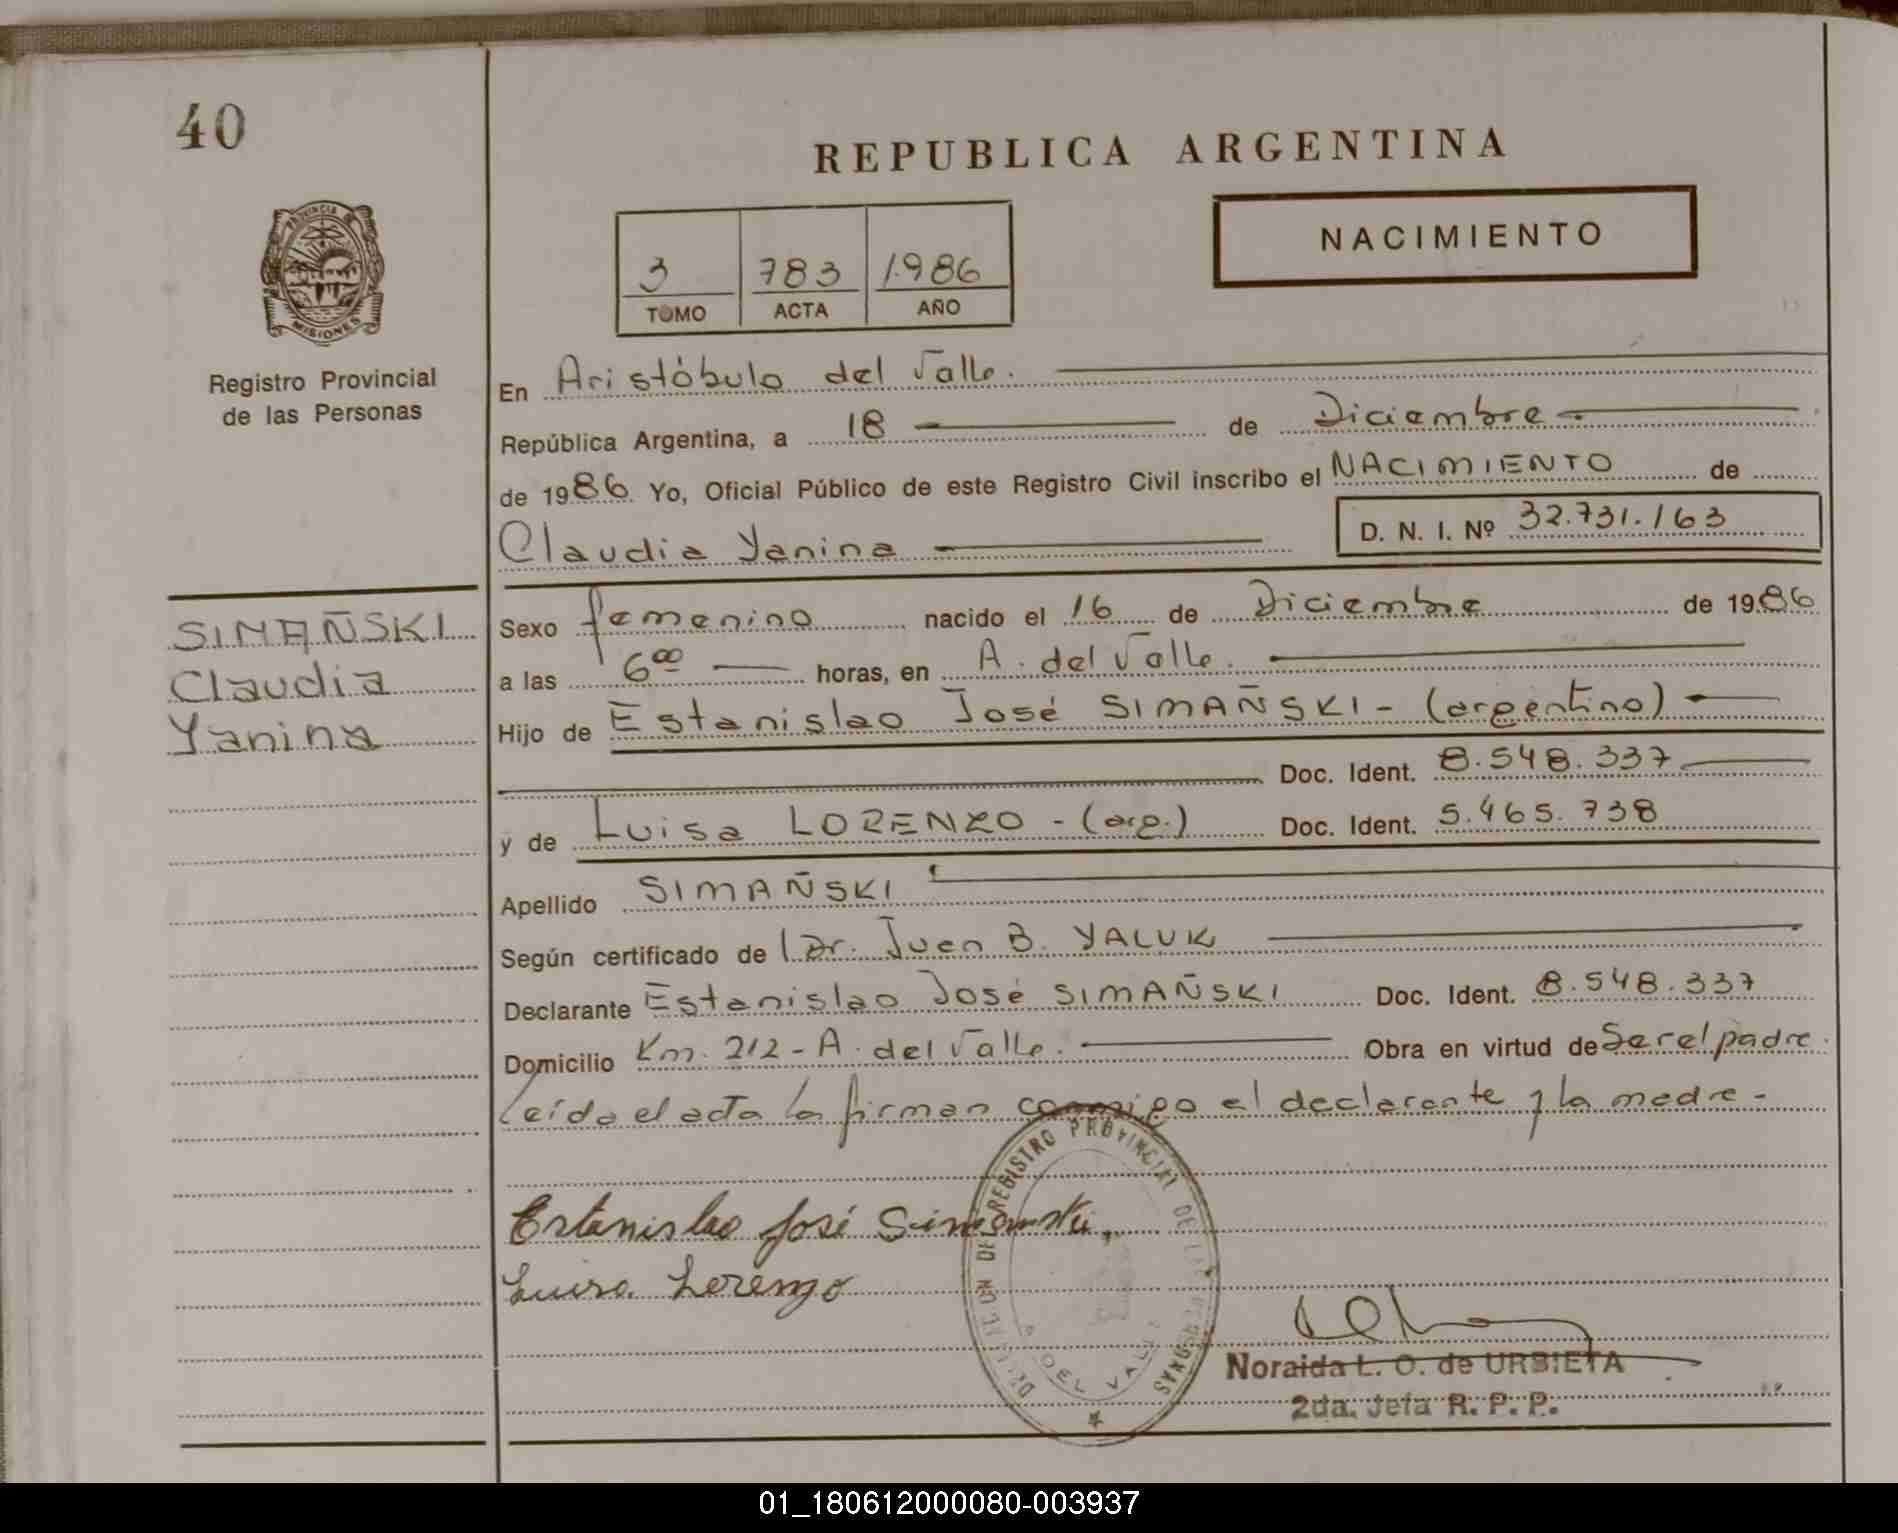 40
REPUBLICA ARGENTINA
NACIMIENTO
3 783 1.986
TOMO ACTA AÑO
PROVINCIA DE MISIONES
Registro Provincial
de las Personas
En Aristóbulo del Valle.
República Argentina, a 18 de Diciembre
de 1986 Yo, Oficial Público de este Registro Civil inscribo el NACIMIENTO de
Claudia Yanina D. N. I. Nº 32.731.163
SIMAÑSKI
Claudia
Yanina
Sexo femenino nacido el 16 de Diciembre de 1986
a las 600 horas, en A. del Valle.
Hijo de Estanislao José SIMAÑSKI - (argentino)
Doc. Ident. 8.548.337
y de Luisa LORENZO - (arg.) Doc. Ident. 5.465.738
Apellido SIMAÑSKI
Según certificado de Dr. Juan B. YALUK
Declarante Estanislao José SIMAÑSKI Doc. Ident. 8.548.337
Domicilio Km. 212 - A. del Valle. Obra en virtud de Ser el padre.
Leída el acta la firman conmigo el declarante y la madre -
Estanislao José Simanski
Luisa Lorenzo
DEL REGISTRO PROVINCIAL DE LAS PERSONAS
A. DEL VALLE
Noraida L. O. de URBIETA
2da. Jefa R. P. P.
01_180612000080-003937